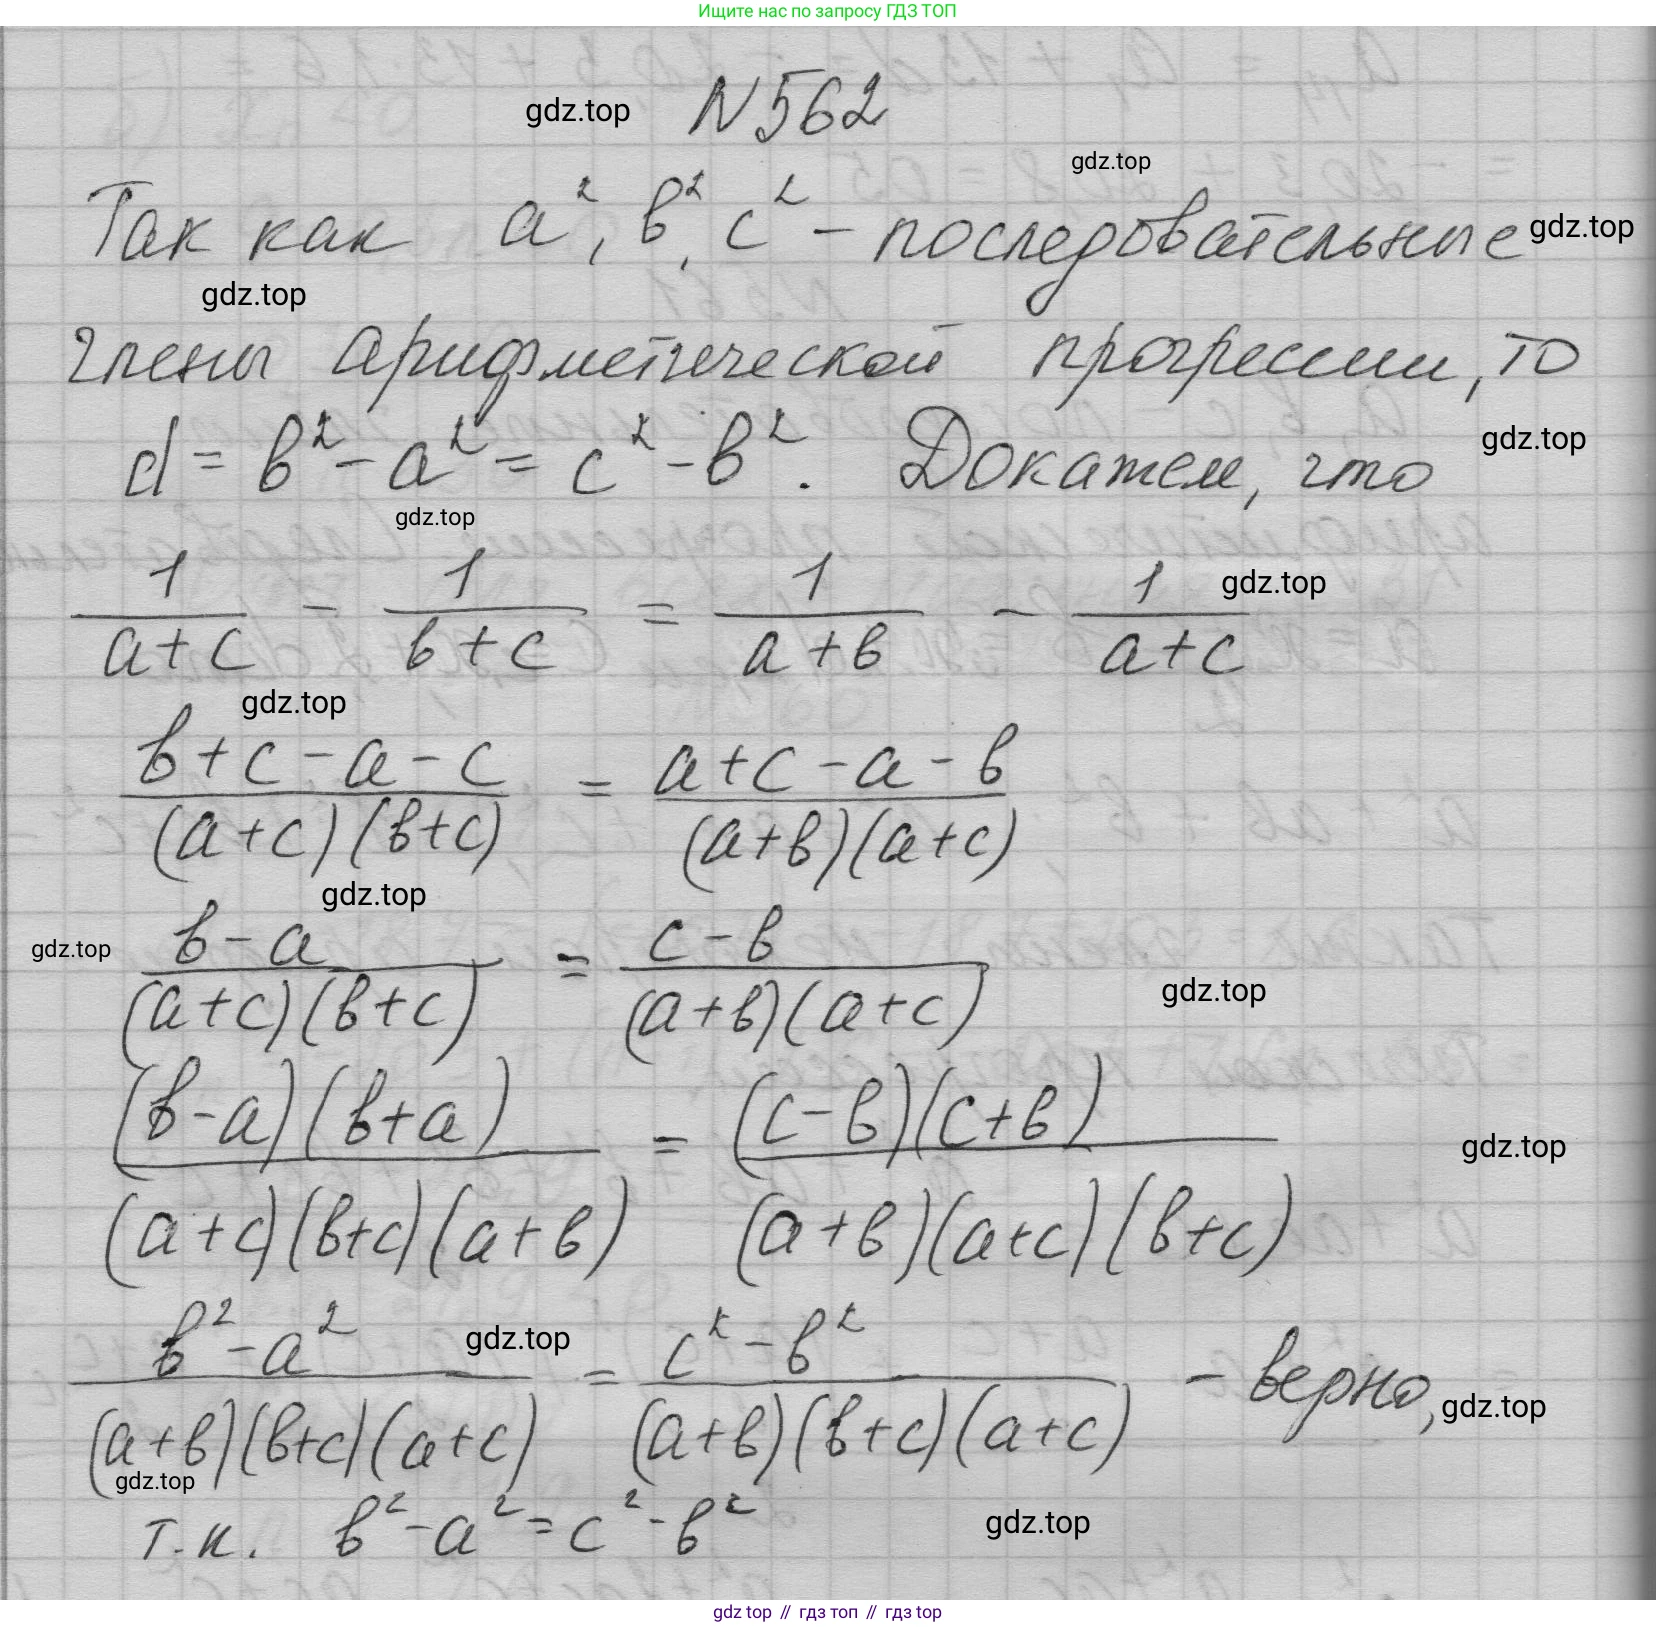 Ищите нас по запросу ГДЗ ТОП
gdz.top N 562
gdz.top
Так как a², b², c² – последовательные gdz.top
gdz.top
члены арифметической прогрессии, то
d = b² – a² = c² – b². Докажем, что gdz.top
gdz.top
1/(a+c) – 1/(b+c) = 1/(a+b) – 1/(a+c) gdz.top
gdz.top
(b+c–a–c)/((a+c)(b+c)) = (a+c–a–b)/((a+b)(a+c))
gdz.top
gdz.top (b–a)/((a+c)(b+c)) = (c–b)/((a+b)(a+c)) gdz.top
((b–a)(b+a))/((a+c)(b+c)(a+b)) = ((c–b)(c+b))/((a+b)(a+c)(b+c)) gdz.top
gdz.top
(b²–a²)/((a+b)(b+c)(a+c)) = (c²–b²)/((a+b)(b+c)(a+c)) – верно, gdz.top
gdz.top
т.к. b²–a² = c²–b² gdz.top
gdz top // гдз топ // gdz.top